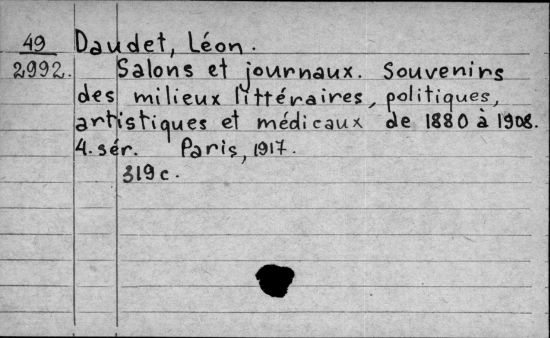 49 Daudet, Léon.
2992. Salons et journaux. Souvenirs
des milieux littéraires, politiques,
artistiques et médicaux de 1880 à 1908.
4. sér. Paris, 1917.
319 c.